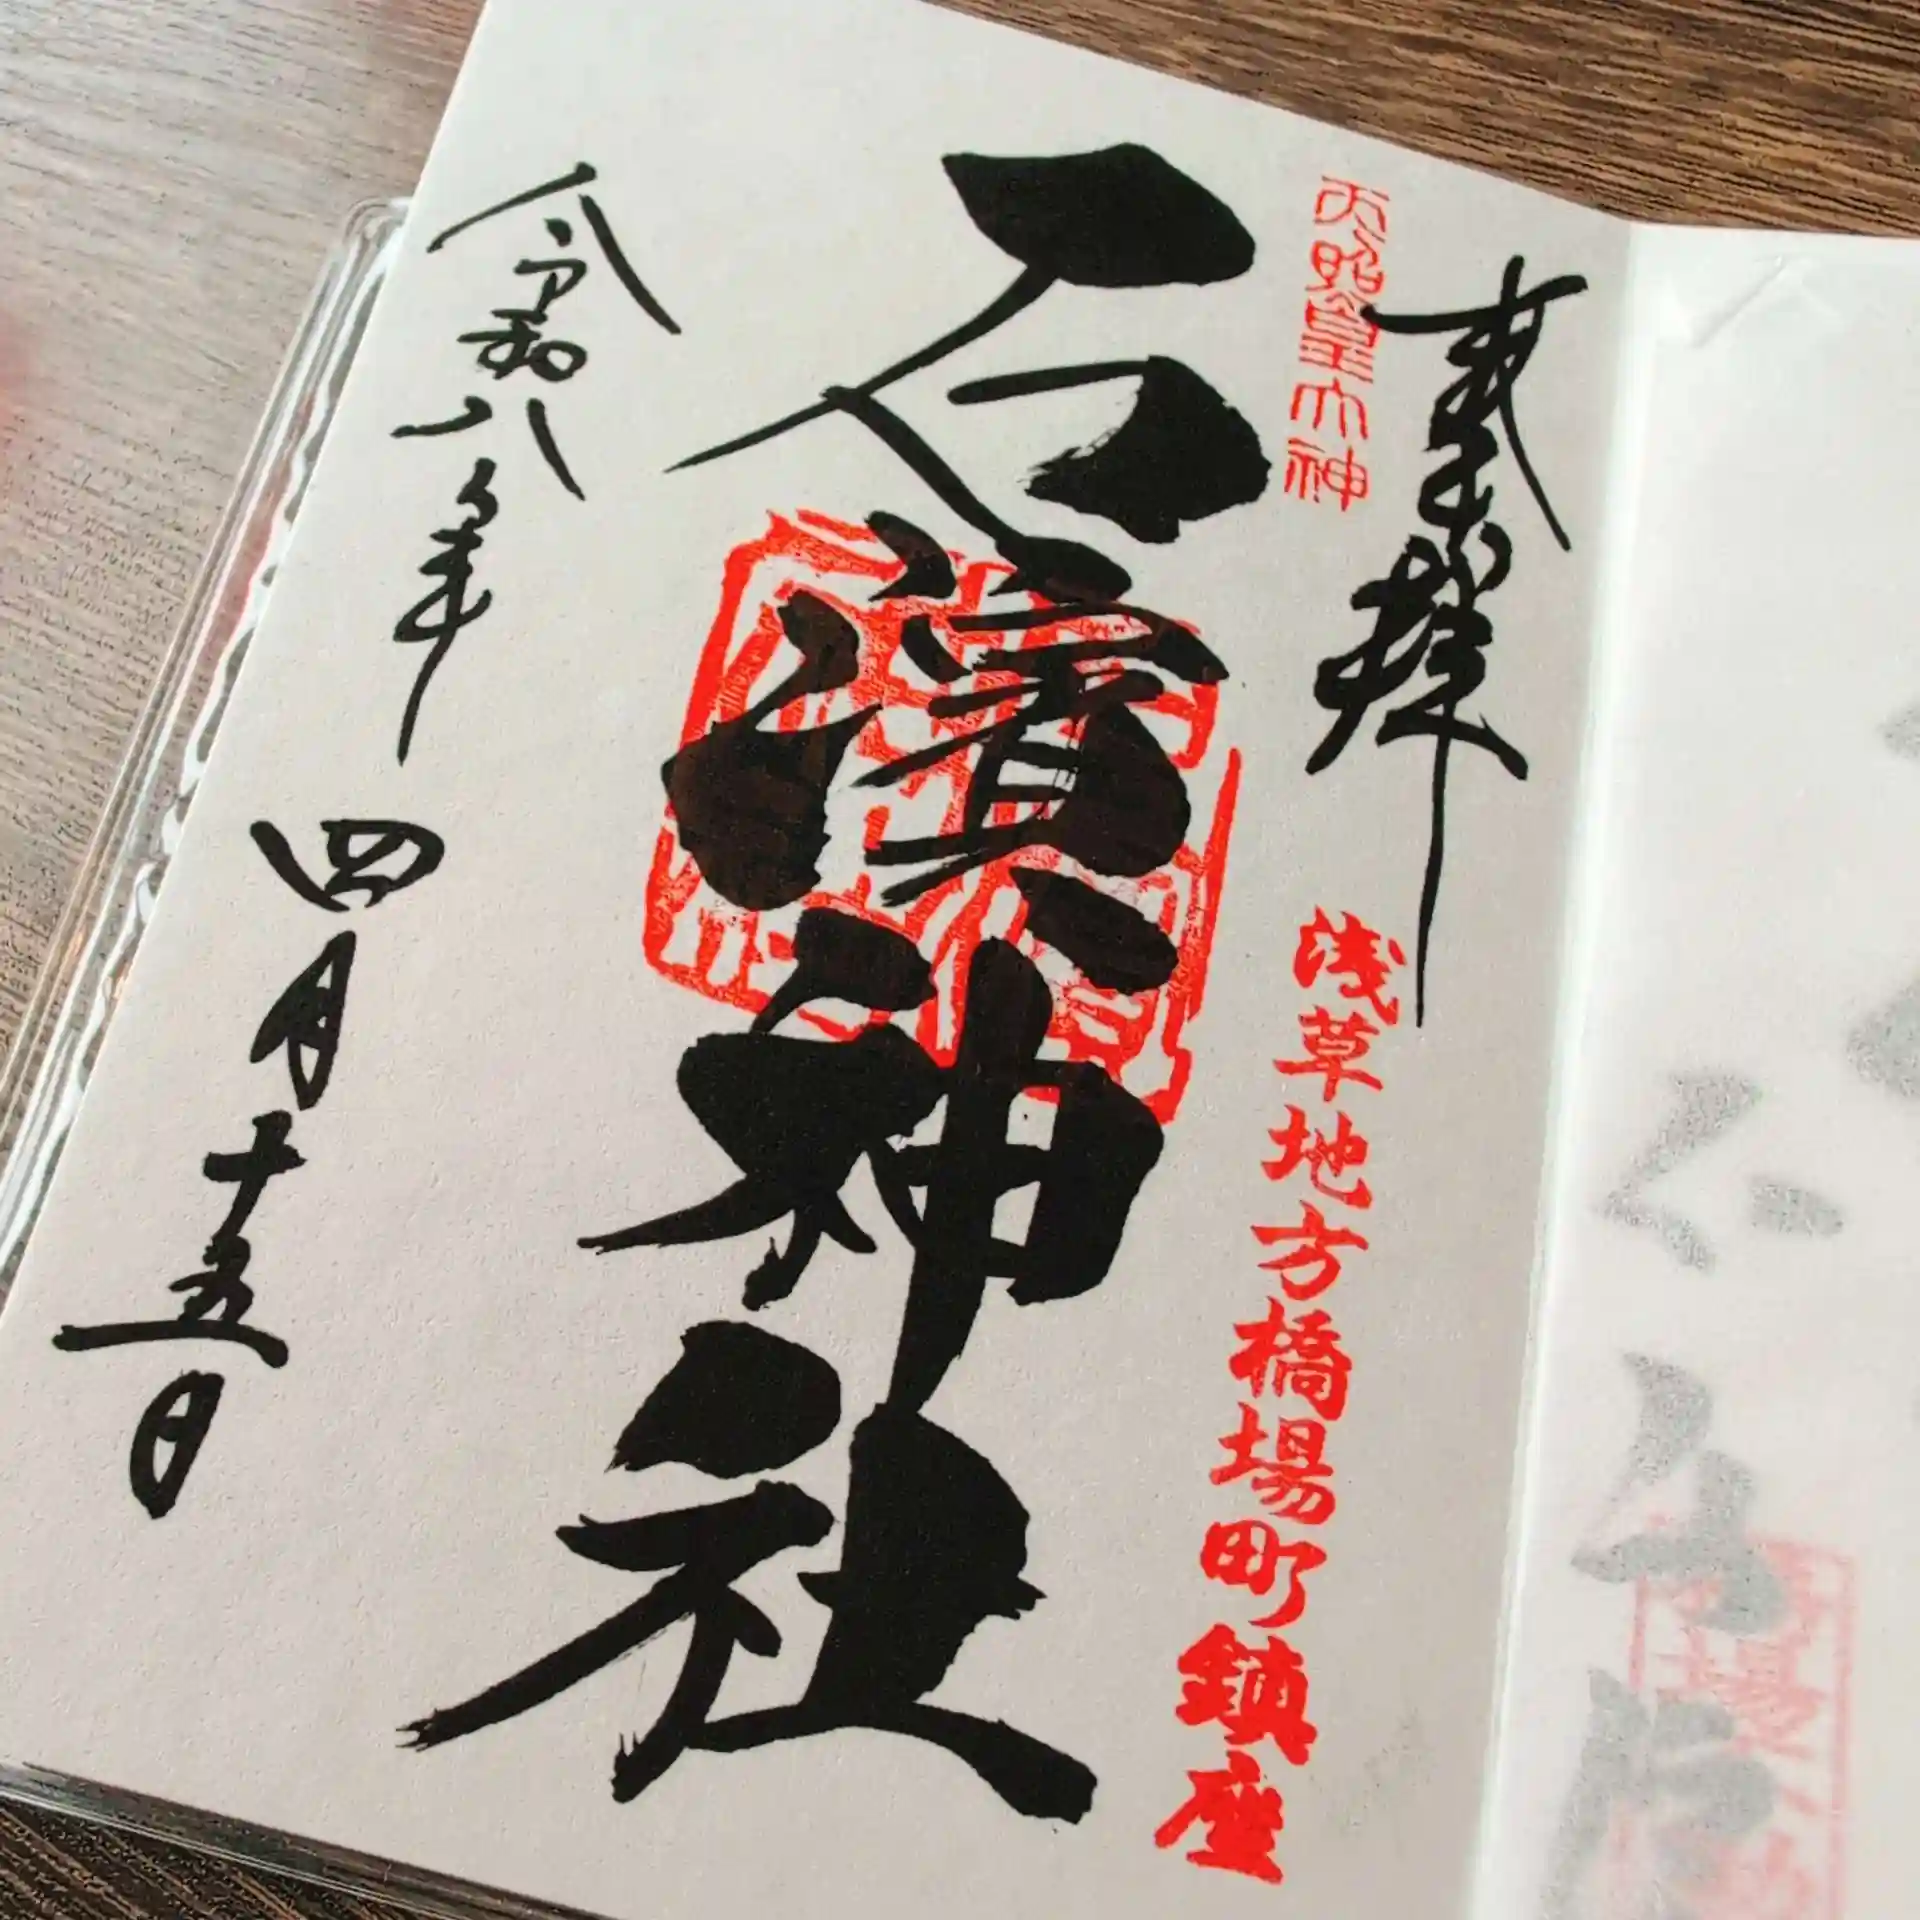 奉拝
天照皇大神
浅草地方橋場町鎮座
石濱神社
令和八年四月十五日